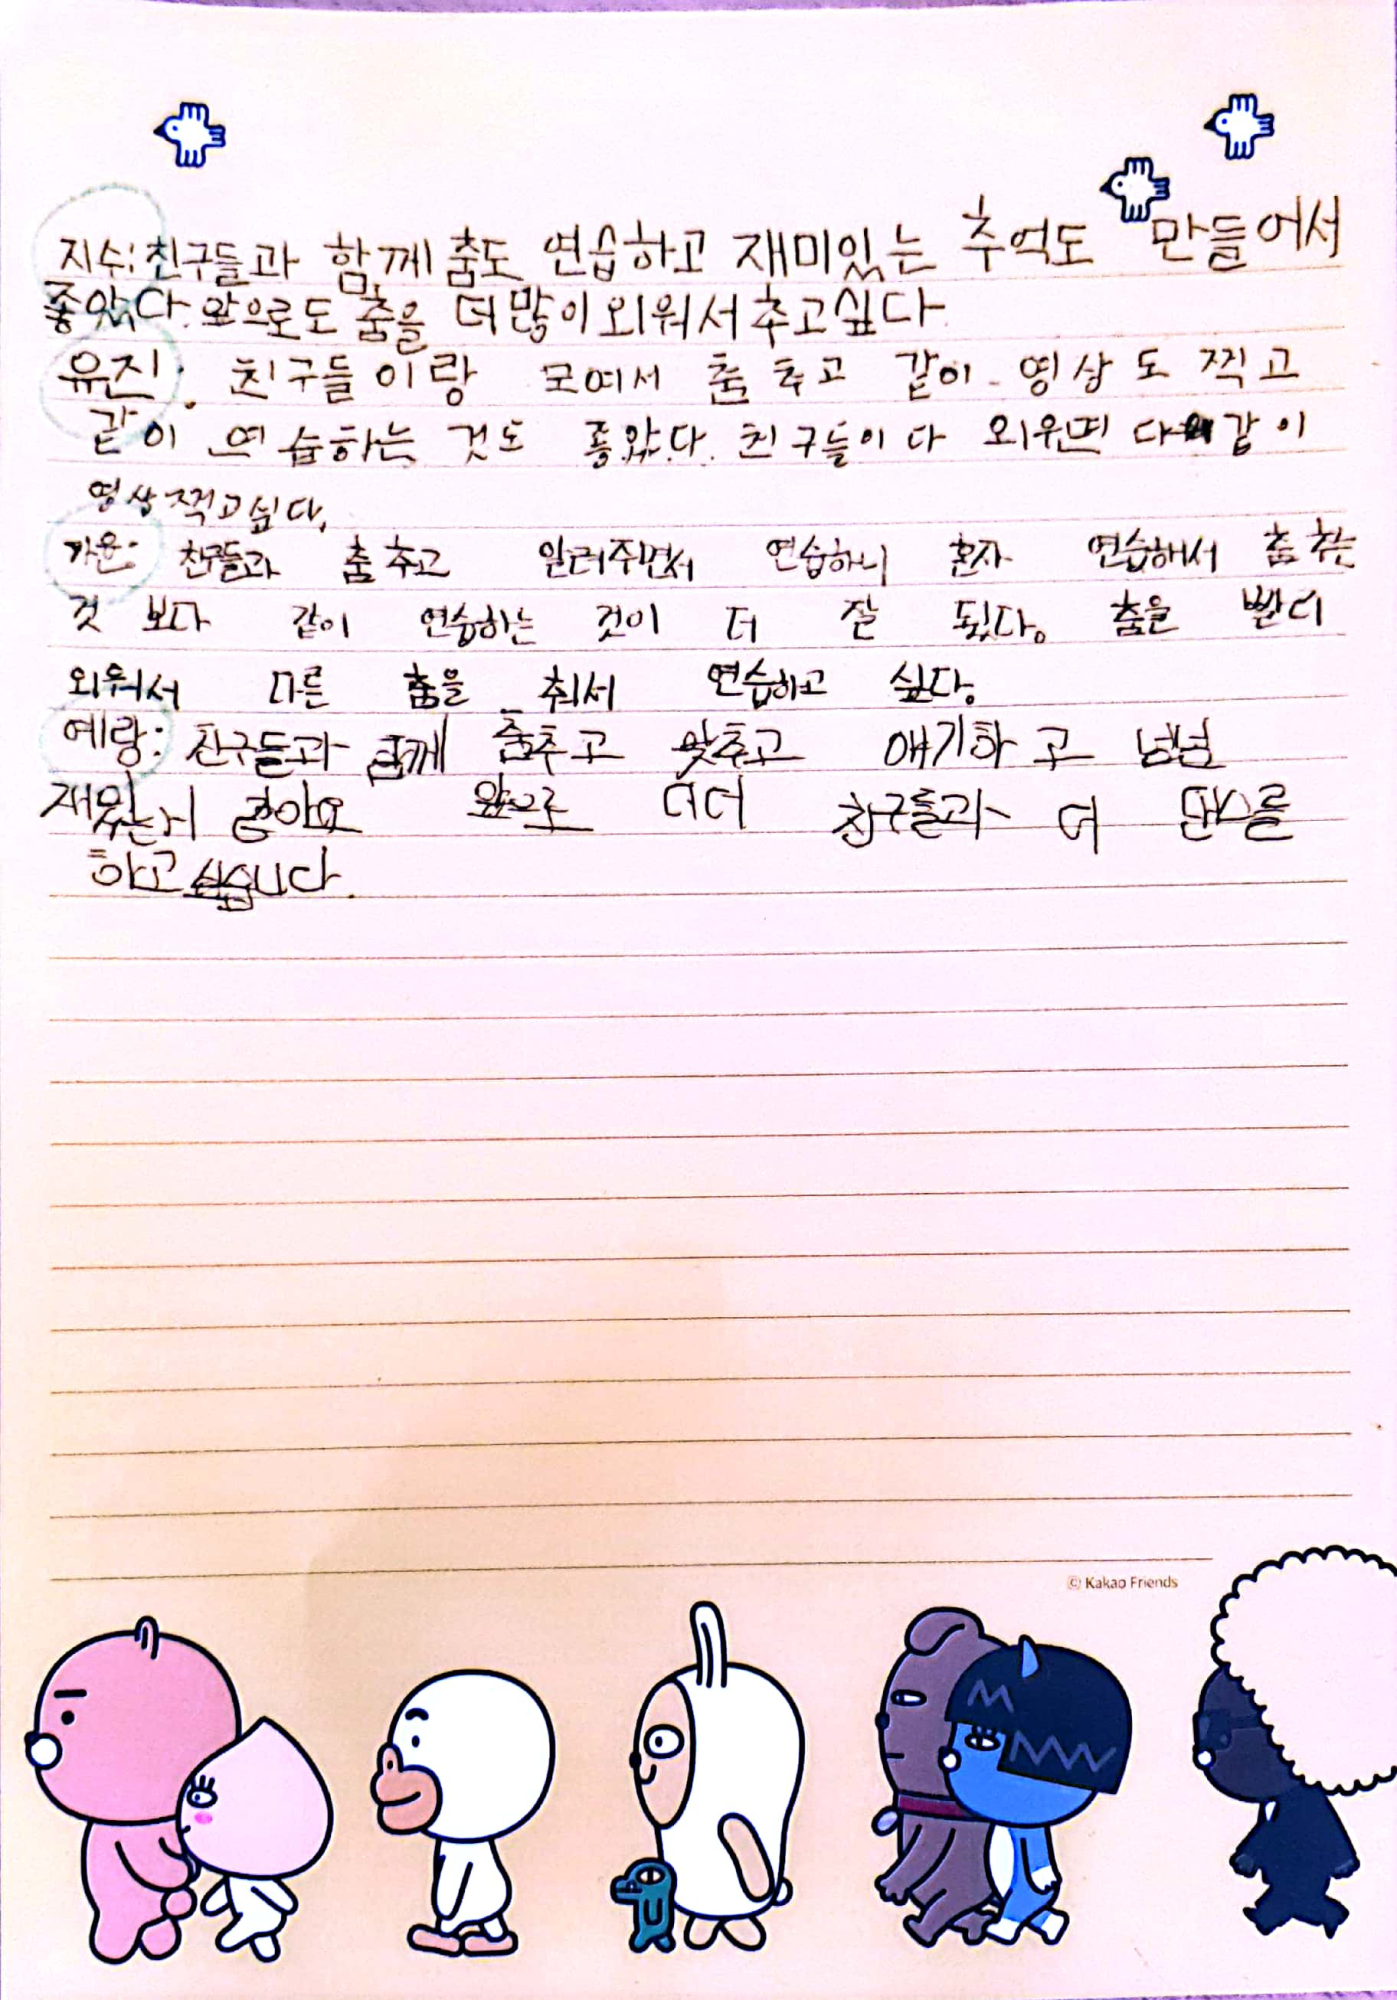 지수: 친구들과 함께 춤도 연습하고 재미있는 추억도 만들어서
좋았다. 앞으로도 춤을 더 많이 외워서 추고싶다.
유진: 친구들이랑 모여서 춤 추고 같이 영상도 찍고
같이 연습하는 것도 좋았다. 친구들이 다 외우면 다 같이
영상 찍고싶다.
가온: 친구들과 춤 추고 알려주면서 연습하니 혼자 연습해서 춤 추는
것 보다 같이 연습하는 것이 더 잘 됬다. 춤을 빨리
외워서 다른 춤을 춰서 연습하고 싶다.
예랑: 친구들과 함께 춤추고 맞추고 얘기하고
재밌는거 같아요 앞으로 더더 친구들과 더 댄스를
하고 싶습니다.
© Kakao Friends